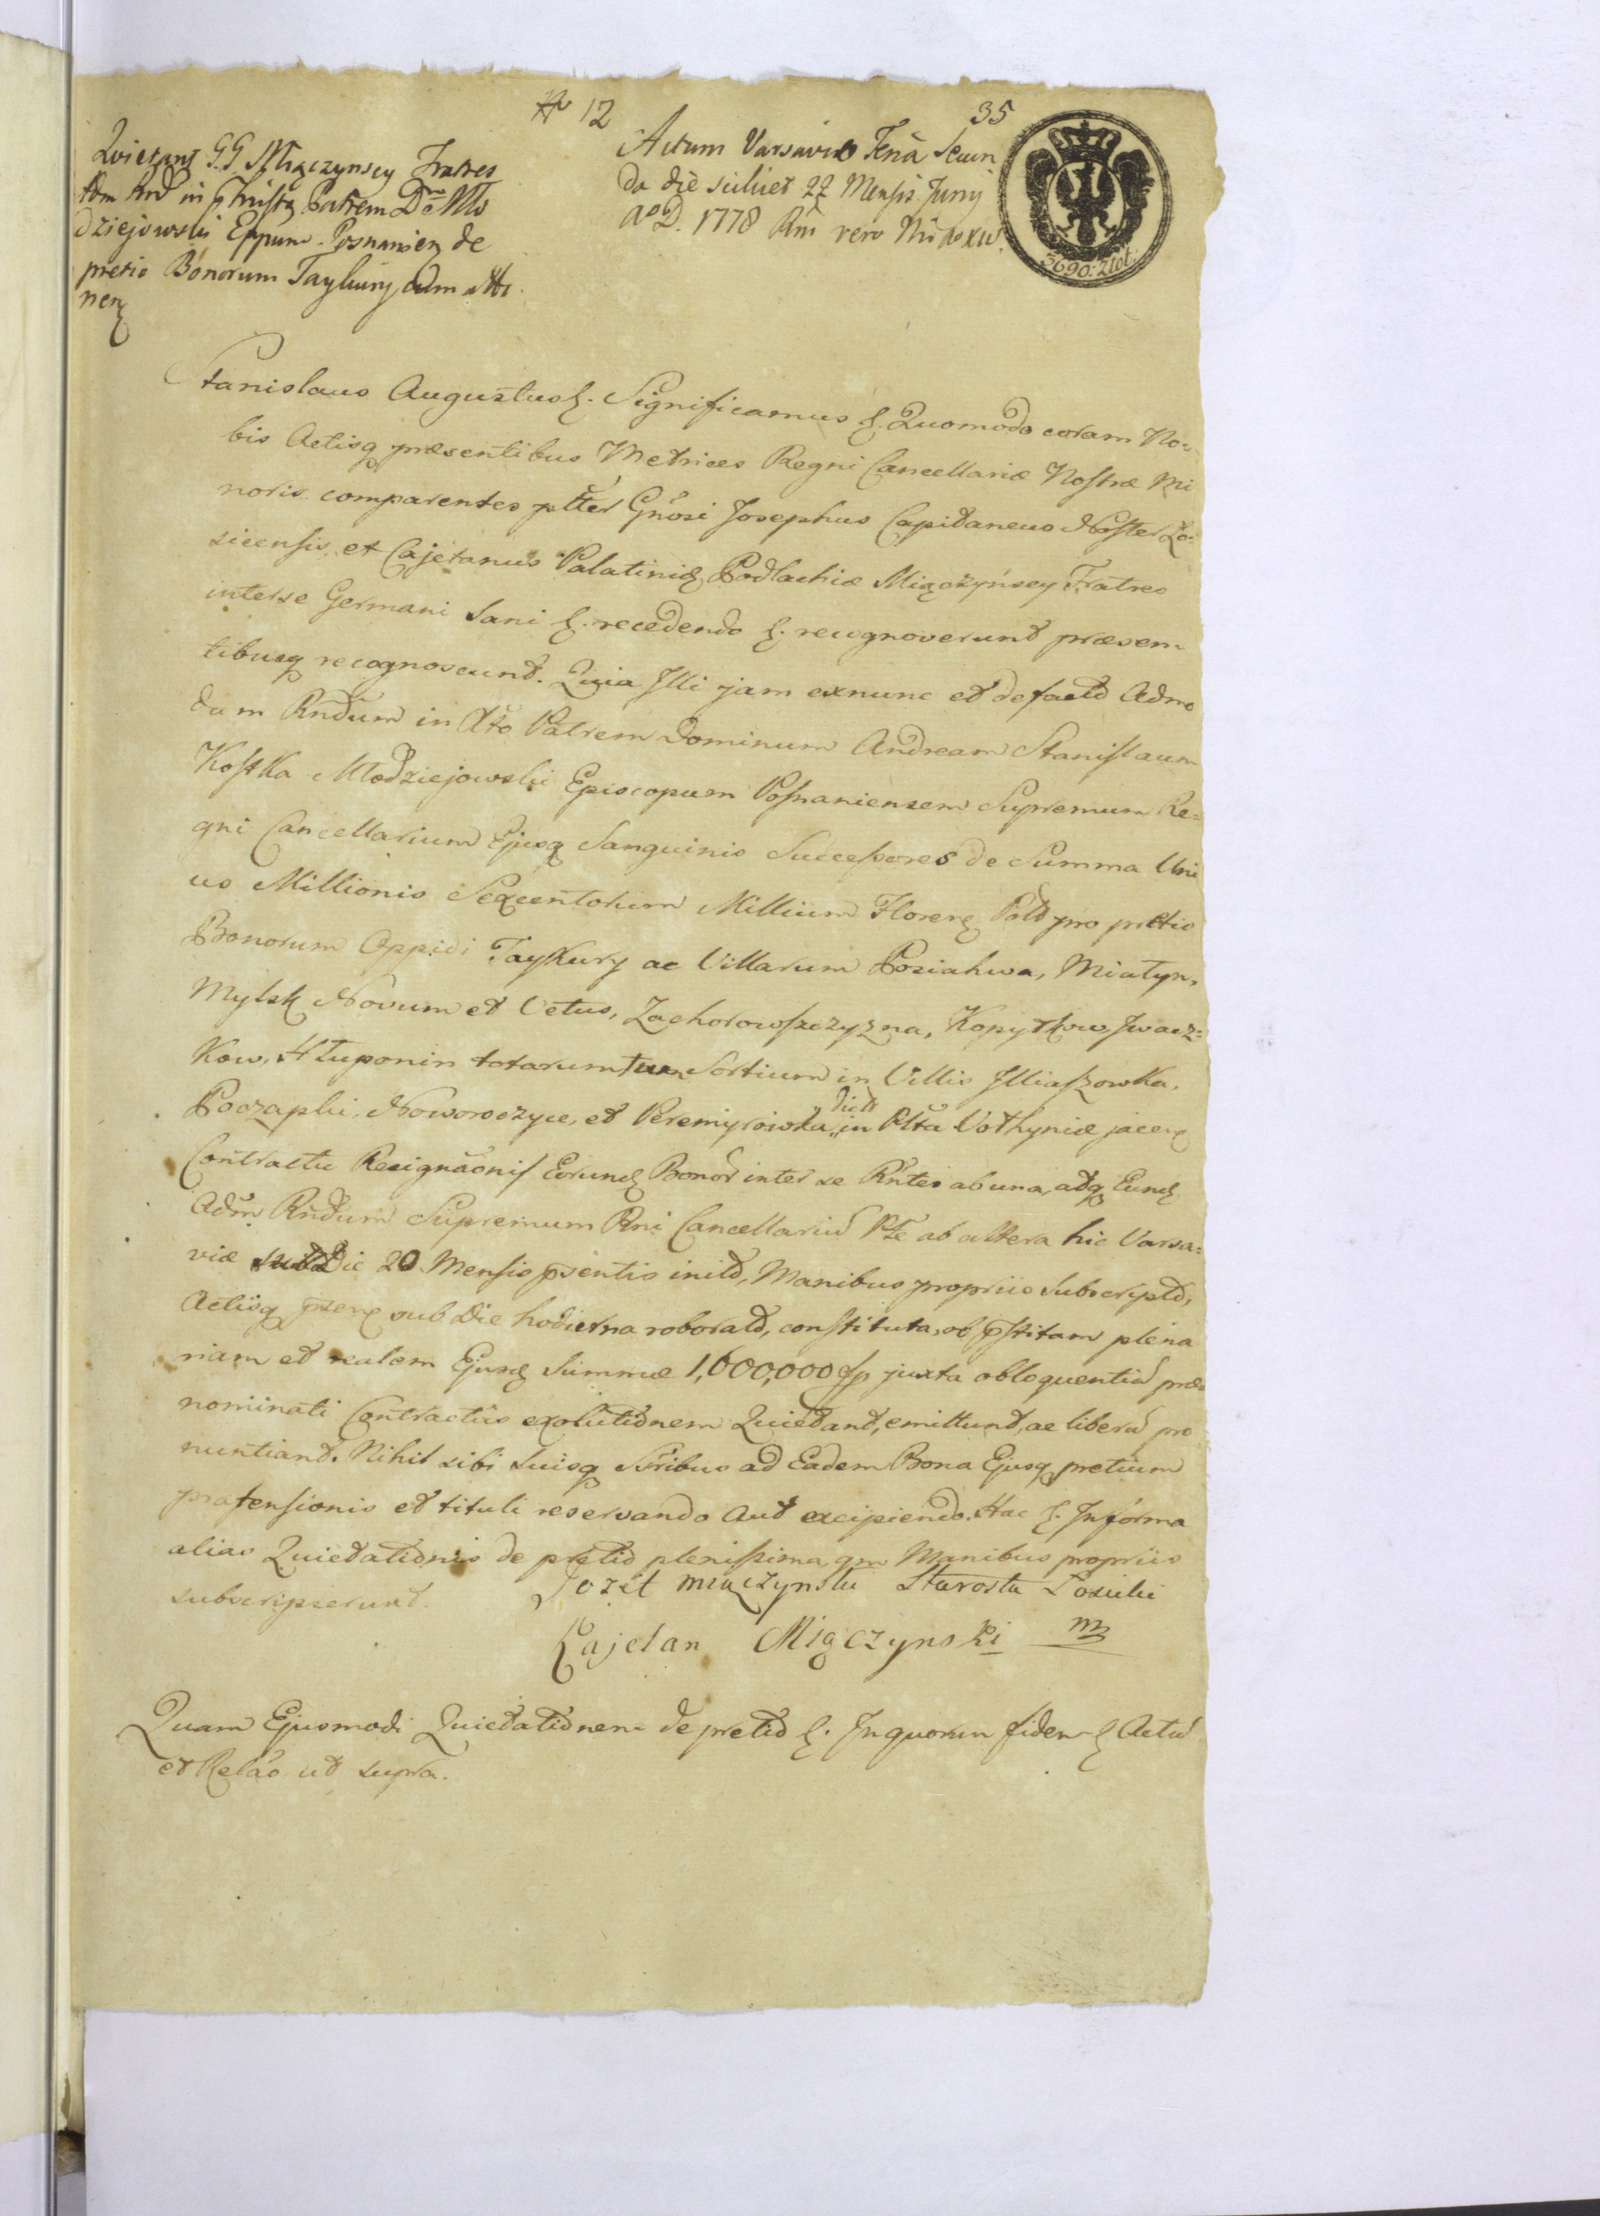 № 12
35
Quietant G.G Miączynscy Fratres
Adm Rnd in Christo Patrem Dnm Mło
dziejowski Eppum Posnanien de
pretio Bonorum Taykury cum atti
nen
Actum Varsaviæ Feria Secun
da die scilicet 22 Mensis Junij
Ao D. 1778 Rni vero Nri Ao XIV.
3690: złot.
Stanislaus Augustus &. Significamus &. Quomodo coram No=
bis Actisq præsentibus Metrices Regni Cancellariæ Nostræ Mi
noris comparentes pltter Gnosi Josephus Capitaneus Noster Ło=
sicensis, et Cajetanus Palatinid Podlachiæ Miączyńscy Fratres
interse Germani Sani &. recedendo &. recognoverunt præsen
tibusq recognoscunt. Quia Illi jam exnunc et defacto Admo
dum Rndum in Xto Patrem Dominum Andream Stanislaum
Kostka Młodziejowski Episcopum Posnaniensem Supremum Re=
gni Cancellarium Ejusq Sanguinis Successores de Summa Uni
us Millionis Sexcentorum Millium Floren Pold pro pretio
Bonorum Oppidi Taykury ac Villarum Poziahwa, Miatyn,
Mylsk Novum et Vetus, Zachorowszczyzna, Kopytkow, Jwacz=
kow, Hłuponin totarumtum Sortium in Villis Jlliaszowka,
Poczapki, Noworodczyce, et Peremyrowka dicto in Pltu Vołhyniæ jacen
Contractu Resignaonis Eorund Bonor inter se Rntes ab una, adq Eund
Adm Rndum Supremum Rni Cancellariu Pte ab altera hic Varsa=
viæ sub Die 20 Mensis psentis inito, Manibus propriis subscripto,
Actisq psen sub Die hodierna roborato, constituta, ob pstitam plena
riam et realem Ejusd Summæ 1,600,000 fp juxta obloquentiã præ
nominati Contractus exolutionem Quietant, emittunt, ac liberu pro
nuntiant. Nihil sibi suisq Sssribus ad Eadem Bona Ejusq pretium
prætensionis et tituli reservando aut excipiendo. Hac &. In forma
alias Quietationis de pretio plenissima, qm Manibus propriis
subscripserunt.
Jozef Miączynski Starosta Łosicki
Cajetan Miączynski mp
Quam Ejusmodi Quietationem de pretio &. In quorum fidem & Actu
et Relao ut supra.